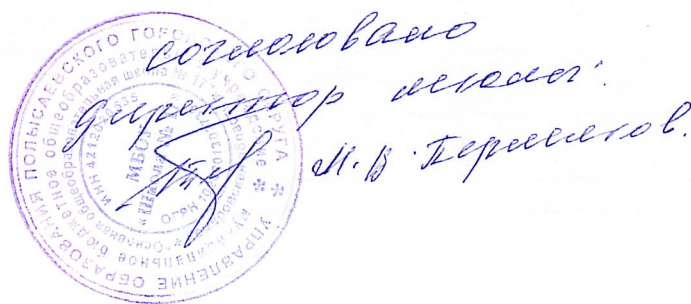 согласовано
директор школы.
М.В. Пермяков.
УПРАВЛЕНИЕ ОБРАЗОВАНИЯ ПОЛЫСАЕВСКОГО ГОРОДСКОГО ОКРУГА
Муниципальное бюджетное общеобразовательное учреждение
"Основная общеобразовательная школа № 17"
ИНН
ОГРН